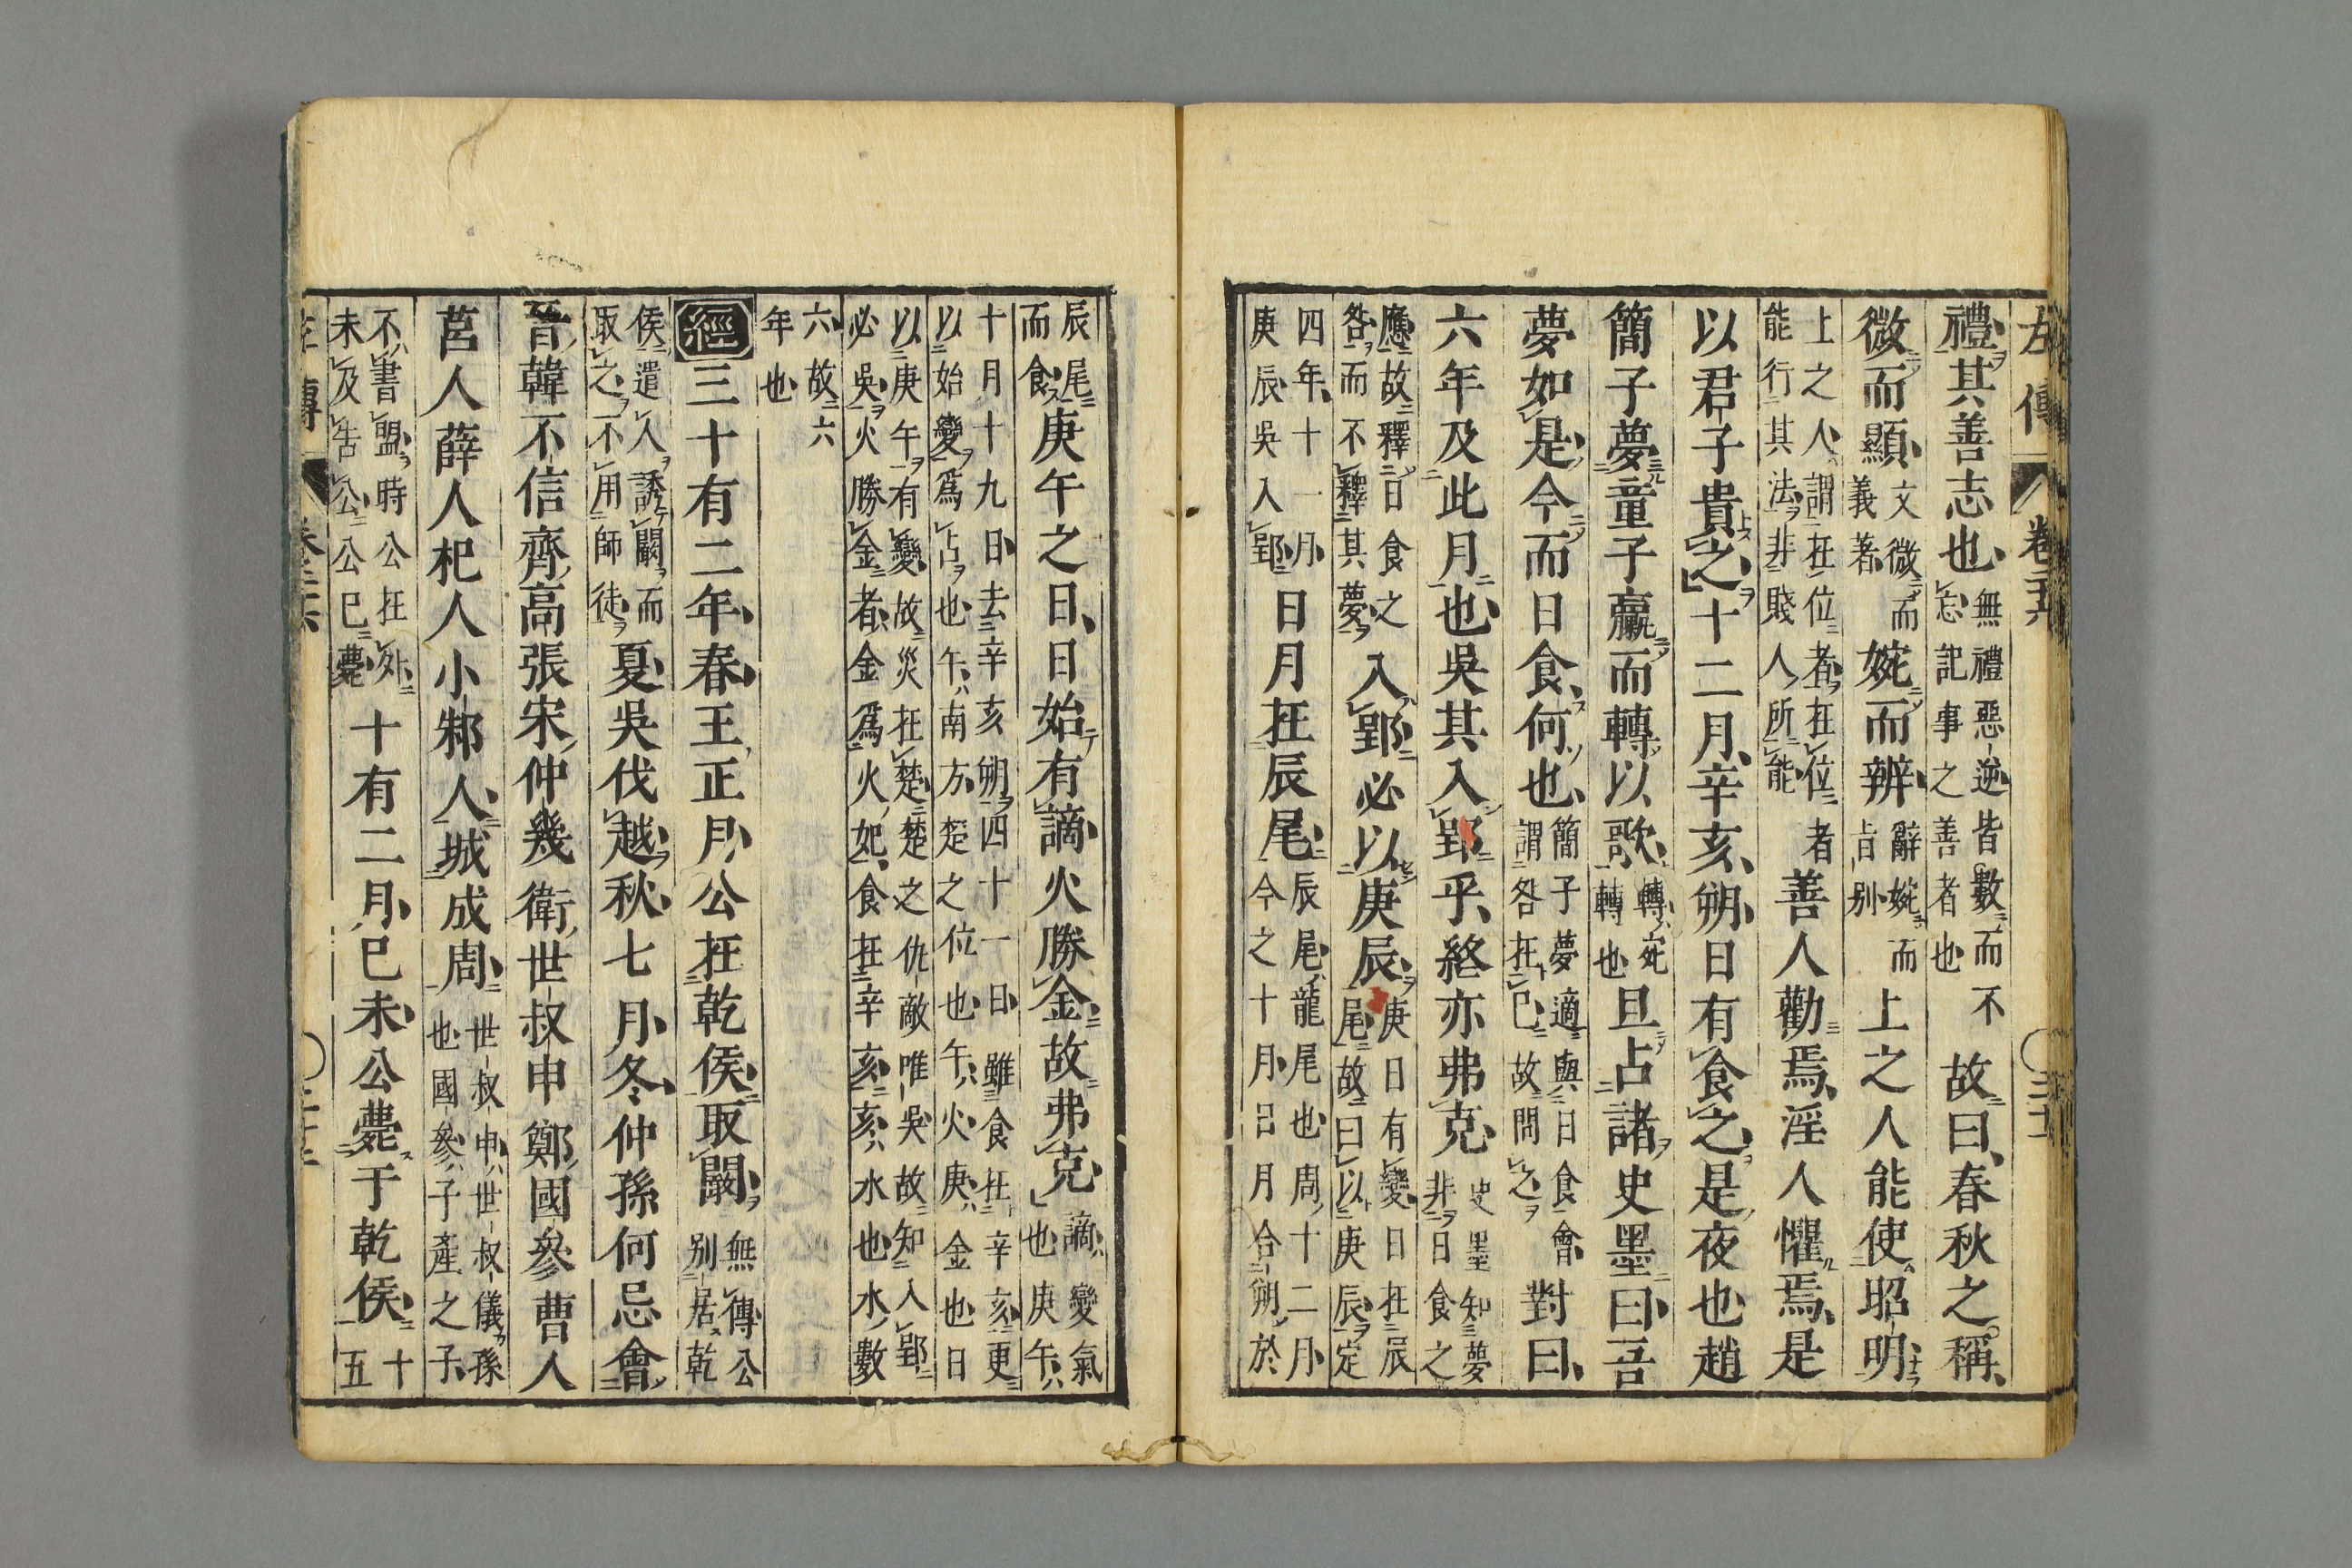 左傳 卷二十六
禮其善志也無禮惡逆皆數而不忘記事之善者也故曰春秋之稱
微而顯文微而義著婉而辨辭婉而旨別上之人能使昭明
上之人謂在位者在位者能行其法非賤人所能善人勸焉淫人懼焉是
以君子貴之十二月辛亥朔日有食之是夜也趙
簡子夢童子羸而轉以歌轉宛轉也旦占諸史墨曰吾
夢如是今而日食何也簡子夢適與日食會謂咎在己故問之對曰
六年及此月也吳其入郢乎終亦弗克史墨知夢非日食之
應故釋日食之咎而不釋其夢入郢必以庚辰庚日有變日在辰尾故曰以庚辰定
四年十一月庚辰吳入郢日月在辰尾辰尾龍尾也周十二月今之十月日月合朔於
辰尾而食庚午之日日始有謫火勝金故弗克謫變氣也庚午
十月十九日去辛亥朔四十一日雖食在辛亥更
以始變爲占也午南方楚之位也午火庚金也日
以庚午有變故災在楚楚之仇敵唯吳故知入郢
必吳火勝金者金爲火妃食在辛亥亥水也水數
六故六年也
經三十有二年春王正月公在乾侯取闞無傳公別居乾
侯遣人誘闞而取之不用師徒夏吳伐越秋七月冬仲孫何忌會
晉韓不信齊高張宋仲幾衛世叔申鄭國參曹人
莒人薛人杞人小邾人城成周世叔申世叔儀孫也國參子產之子
不書盟時公在外未及告公公已薨十有二月己未公薨于乾侯十五